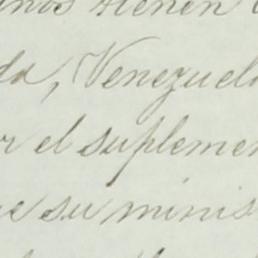 nos tienen
da, Venezuela
r el suplemen
ue su minis